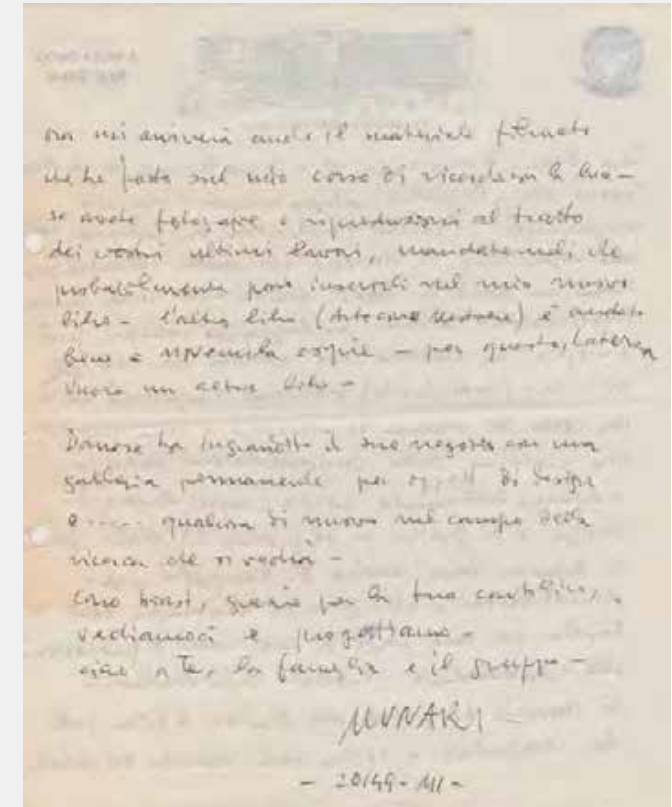 ora mi arriverà anche il materiale filmato
che ho fatto sul mio corso di
se avete fotografie o riproduzioni al tratto
dei vostri ultimi lavori, mandatemeli, che
probabilmente potrò inserirli nel mio nuovo
libro - l'altro libro (Arte come mestiere) è andato
bene = novemila copie - per questo, Laterza
vuole un altro libro -
Danese ha ingrandito il suo negozio con una
galleria permanente per oggetti di design
e ..... qualcosa di nuovo nel campo della
ricerca che si vedrà -
caro Biasi, grazie per la tua
vediamoci e progettiamo -
ciao a te, la famiglia e il gruppo -
MUNARI
- 20149 - MI -